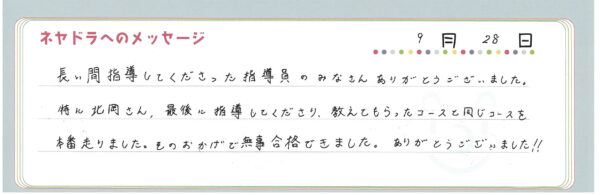 ネヤドラへのメッセージ
9月 28日
長い間指導してくださった指導員のみなさんありがとうございました。
特に北岡さん、最後に指導してくださり、教えてもらったコースと同じコースを
本番走りました。そのおかげで無事合格できました。ありがとうございました!!